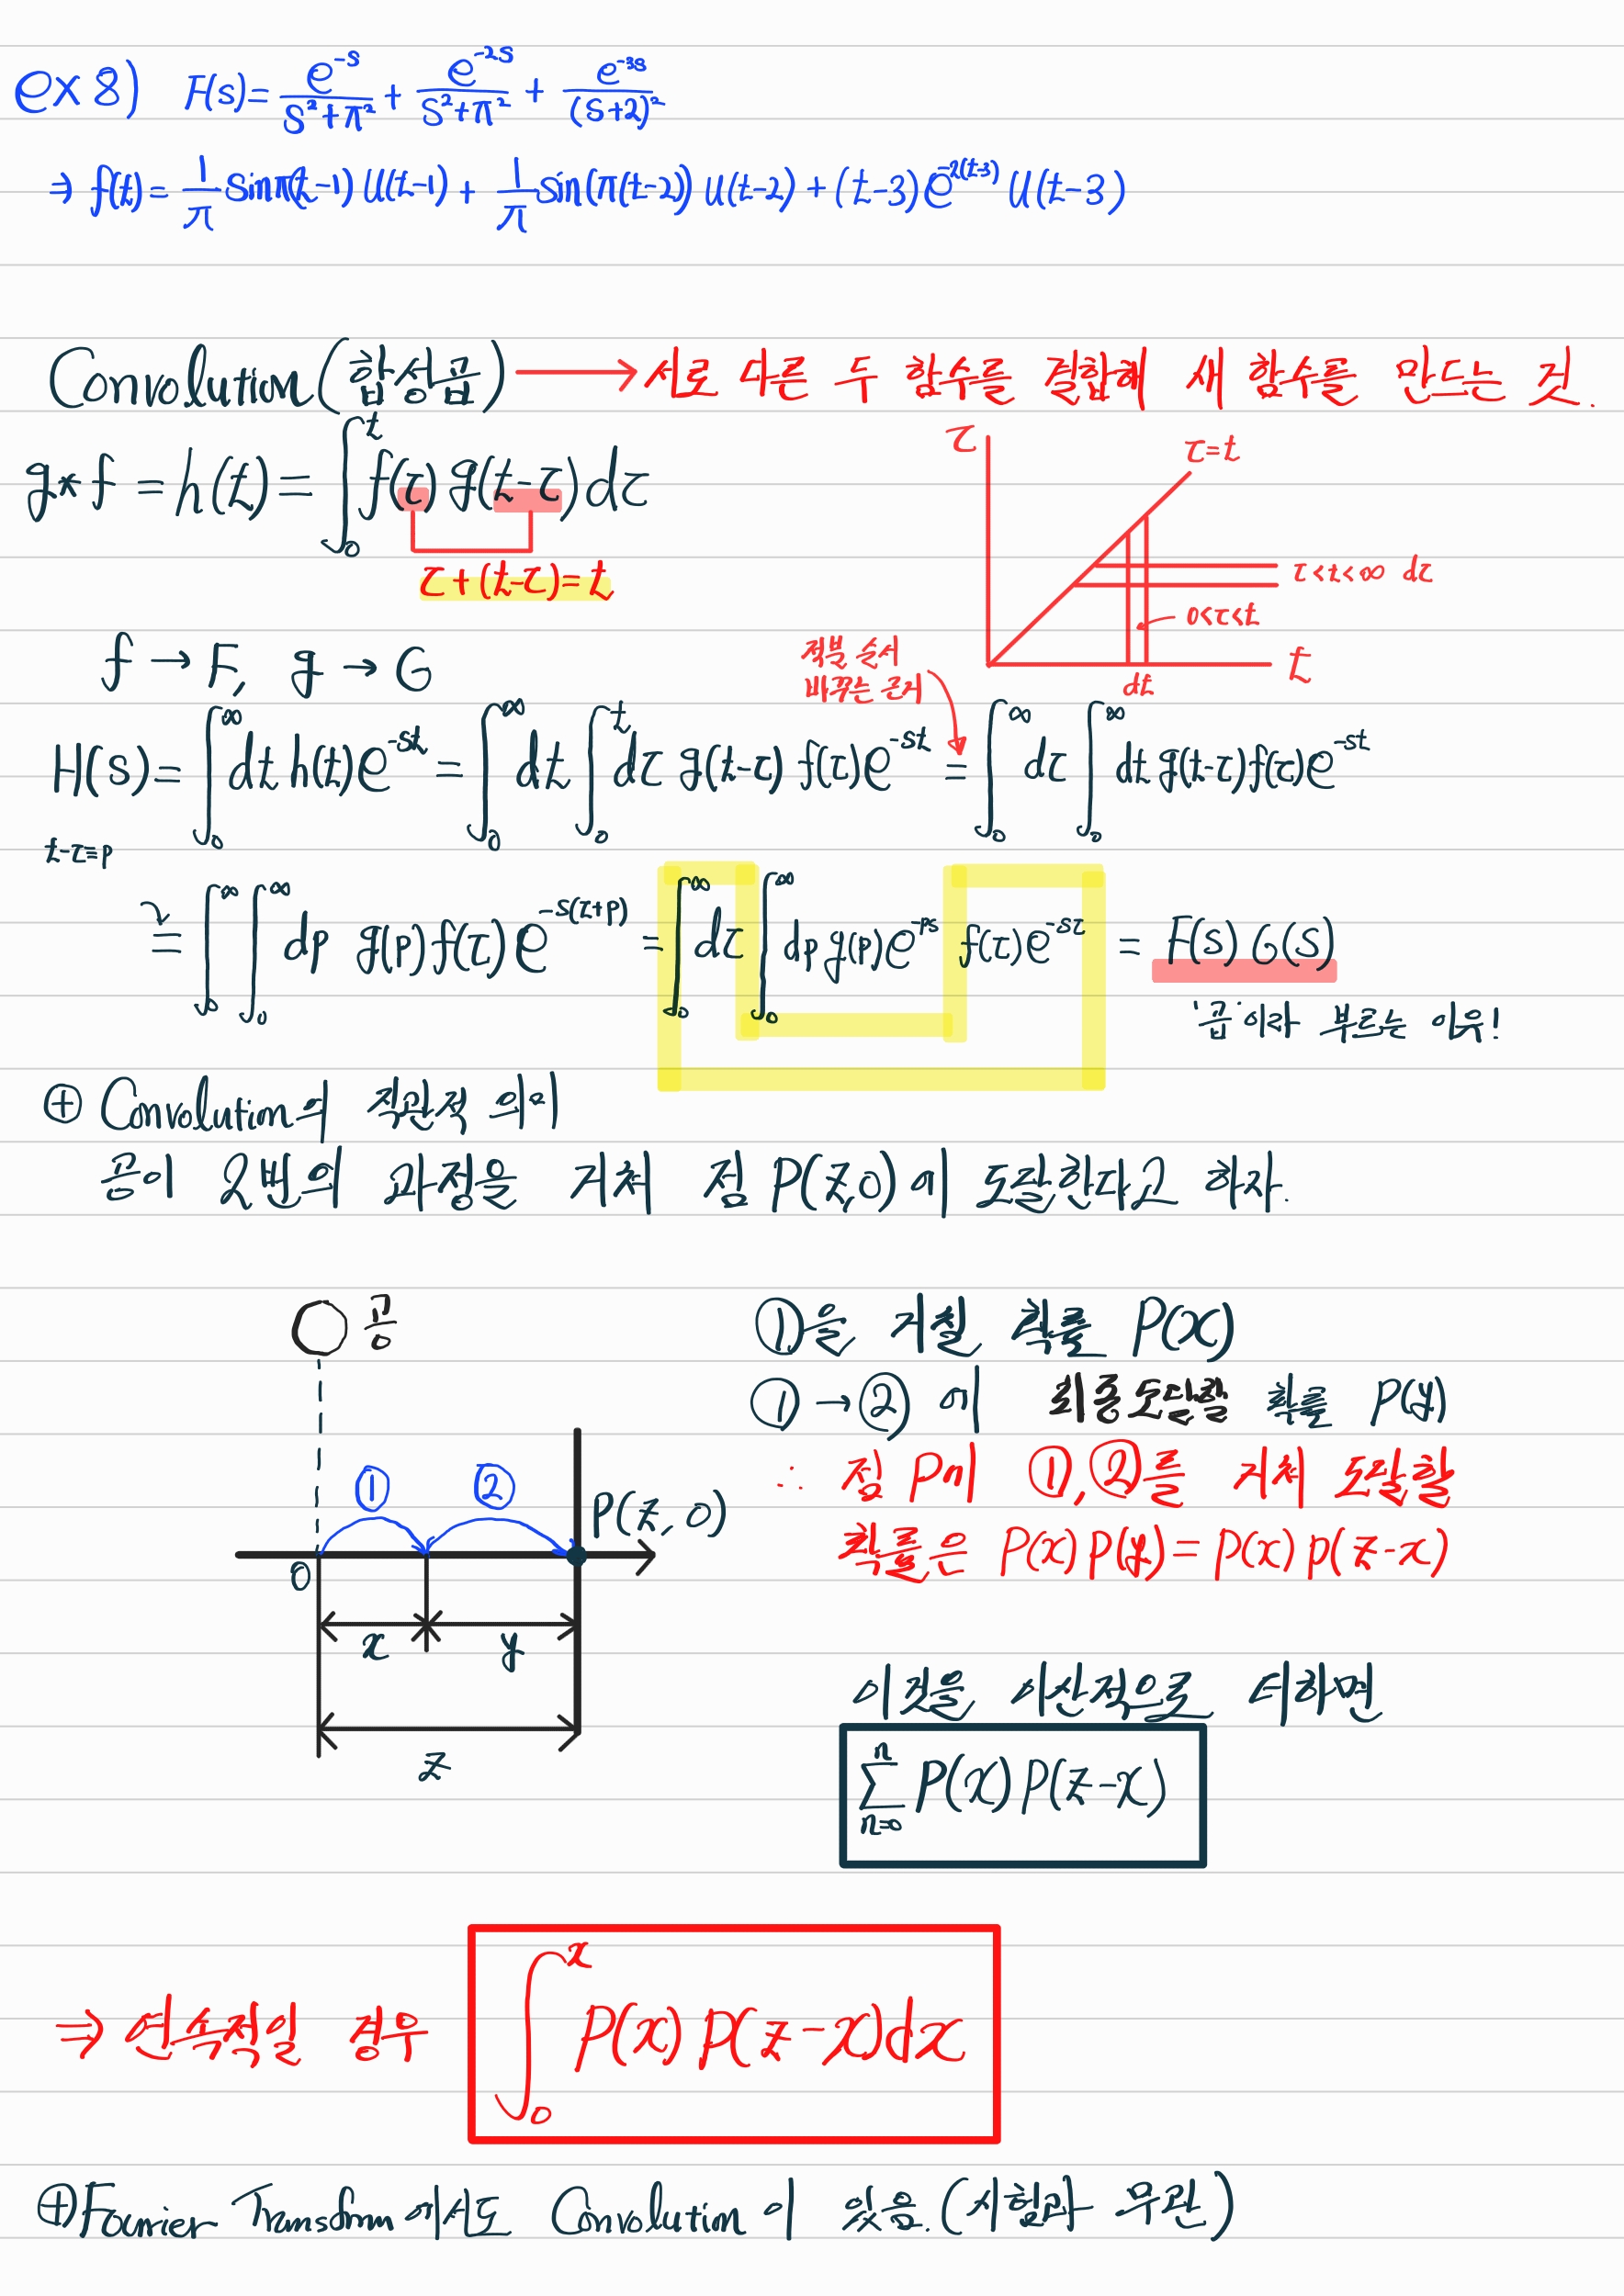 ex 8) F(s) = e^{-s}/(s²+π²) + e^{-2s}/(s²+π²) + e^{-3s}/(s+2)²
⇒ f(t) = 1/π sinπ(t-1) u(t-1) + 1/π sin(π(t-2)) u(t-2) + (t-3)e^{-2(t-3)} u(t-3)
Convolution (합성곱) → 서로 다른 두 함수를 결합해 새 함수를 만드는 것.
g*f = h(t) = ∫₀^t f(τ) g(t-τ) dτ
τ+(t-τ)=t
τ
τ=t
τ<t<∞ dτ
0<τ<t
t
dt
f → F, g → G
적분 순서
바꾸는 근거
H(s) = ∫₀^∞ dt h(t) e^{-st} = ∫₀^∞ dt ∫₀^t dτ g(t-τ) f(τ) e^{-st} = ∫₀^∞ dτ ∫₀^∞ dt g(t-τ) f(τ) e^{-st}
t-τ≡p
= ∫₀^∞ ∫₀^∞ dp g(p) f(τ) e^{-s(τ+p)} = ∫₀^∞ dτ ∫₀^∞ dp g(p) e^{-ps} f(τ) e^{-sτ} = F(s) G(s)
'곱'이라 부르는 이유!
⊕ Convolution의 직관적 의미
공이 2번의 과정을 거쳐 점 P(z,0)에 도달한다고 하자.
공
① ②
P(z, 0)
0
x y
z
①을 거칠 확률 P(x)
①→②에 최종도달할 확률 P(y)
∴ 점 P에 ①,②를 거쳐 도달할
확률은 P(x)P(y) = P(x)p(z-x)
이것을 이산적으로 더하면
∑_{n=0}^{n} P(x) P(z-x)
⇒ 연속적일 경우 ∫₀^x P(x) P(z-x)dx
⊕ Fourier Transform에서도 Convolution이 있음. (시험과 무관)